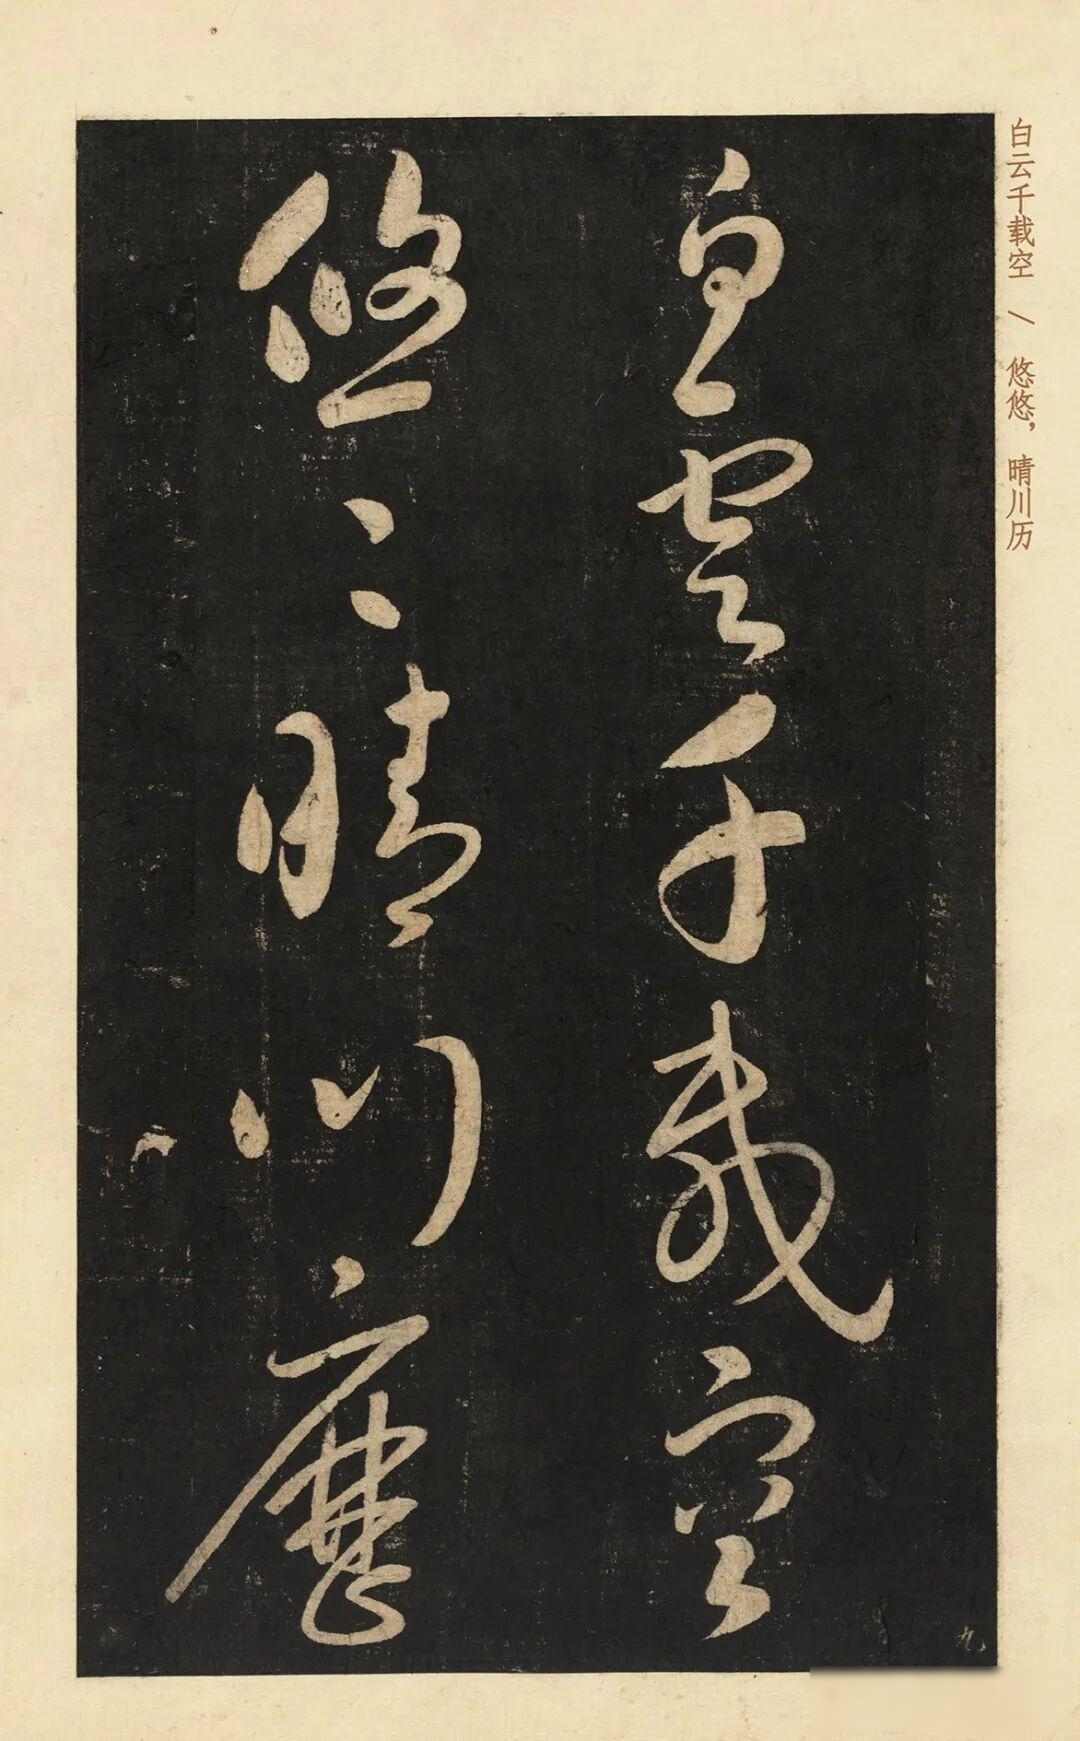 白云千载空 / 悠悠，晴川历
白雲千載空
悠〻晴川歷
九